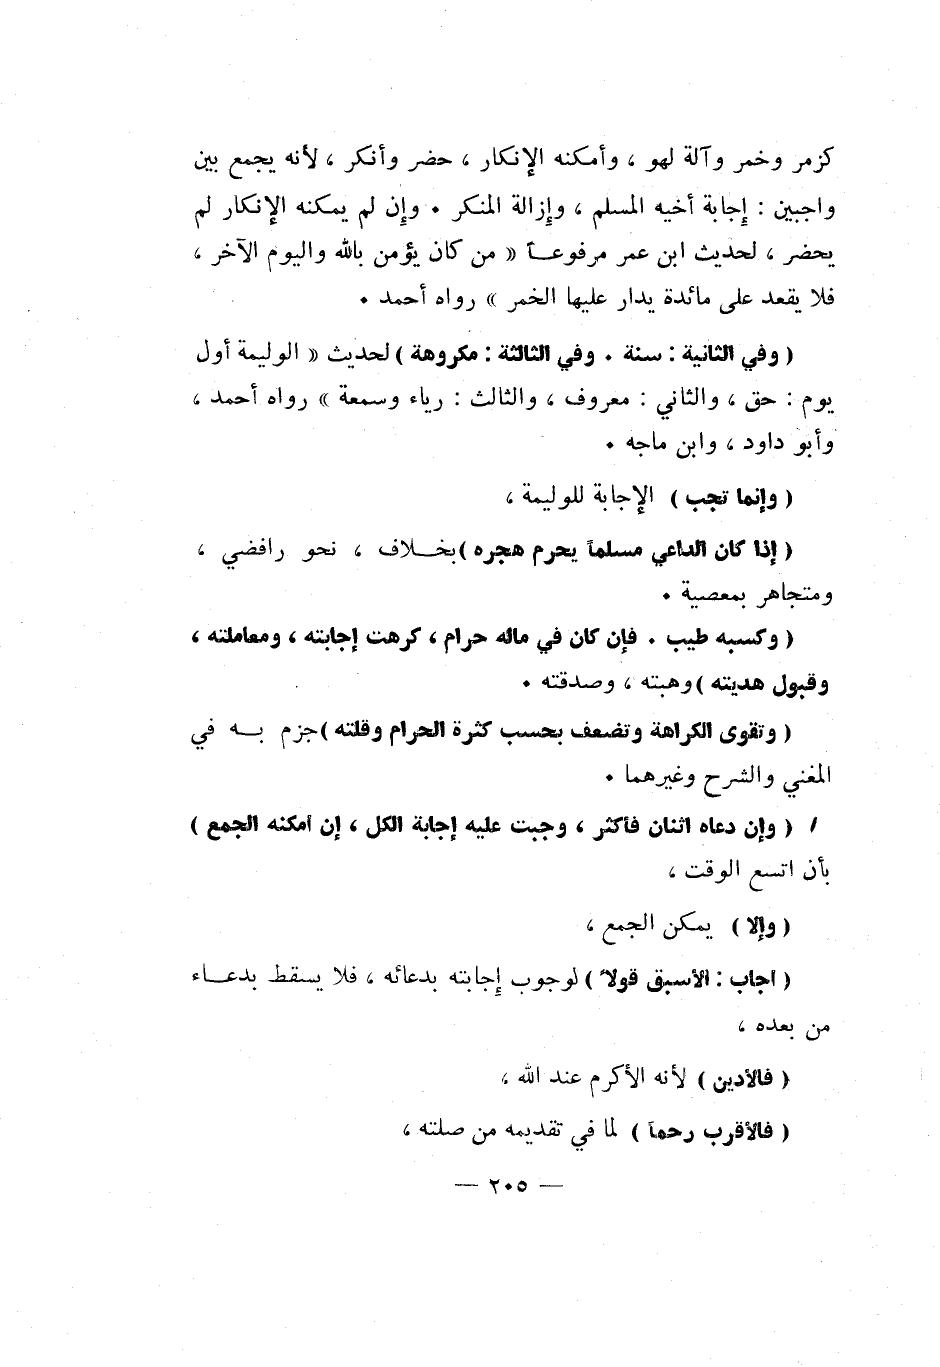 كزمر وخمر وآلة لهو ، وأمكنه الإنكار ، حضر وأنكر ، لأنه يجمع بين
واجبين : إجابة أخيه المسلم ، وإزالة المنكر . وإن لم يمكنه الإنكار لم
يحضر ، لحديث ابن عمر مرفوعاً « من كان يؤمن بالله واليوم الآخر ،
فلا يقعد على مائدة يدار عليها الخمر » رواه أحمد .
( وفي الثانية : سنة . وفي الثالثة : مكروهة ) لحديث « الوليمة أول
يوم : حق ، والثاني : معروف ، والثالث : رياء وسمعة » رواه أحمد ،
وأبو داود ، وابن ماجه .
( وإنما تجب ) الإجابة للوليمة ،
( إذا كان الداعي مسلماً يحرم هجره ) بخلاف ، نحو رافضي ،
ومتجاهر بمعصية .
( وكسبه طيب . فإن كان في ماله حرام ، كرهت إجابته ، ومعاملته ،
وقبول هديته ) وهبته ، وصدقته .
( وتقوى الكراهة وتضعف بحسب كثرة الحرام وقلته ) جزم به في
المغني والشرح وغيرهما .
/ ( وإن دعاه اثنان فأكثر ، وجبت عليه إجابة الكل ، إن أمكنه الجمع )
بأن اتسع الوقت ،
( وإلا ) يمكن الجمع ،
( اجاب : الأسبق قولاً ) لوجوب إجابته بدعائه ، فلا يسقط بدعاء
من بعده ،
( فالأدين ) لأنه الأكرم عند الله ،
( فالأقرب رحماً ) لما في تقديمه من صلته ،
— ٢٠٥ —